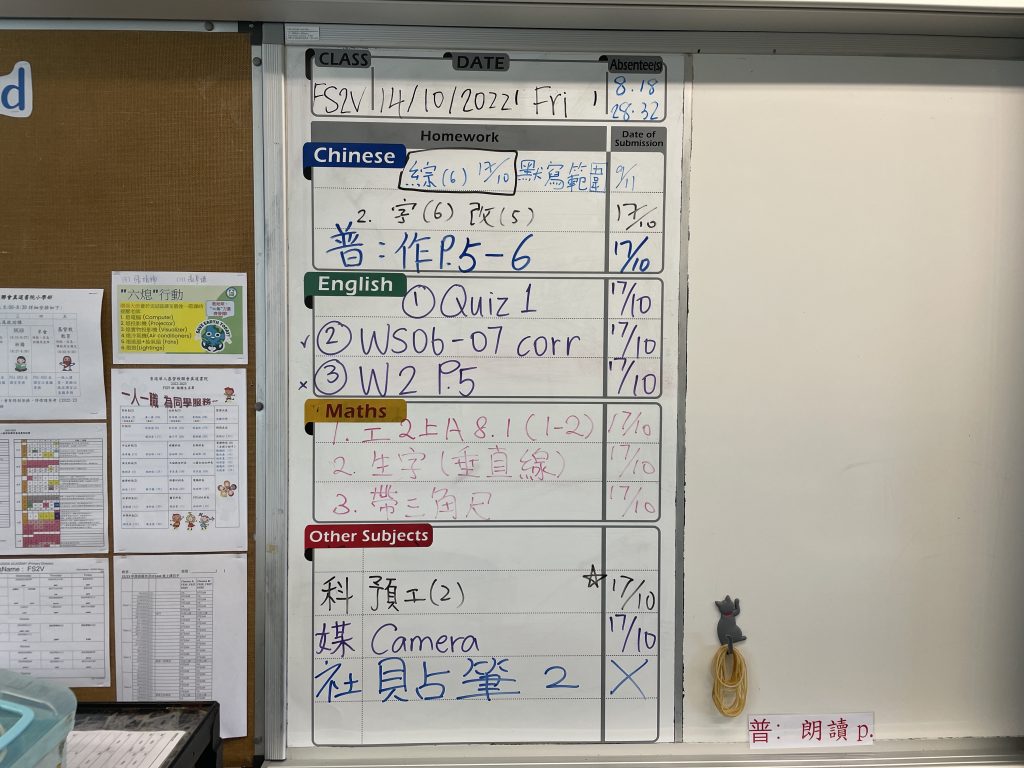 d
CLASS DATE Absentee(s)
FS2V 14/10/2022 Fri 8.18
28.32
Homework Date of Submission
Chinese
綜(6) 17/10 默寫範圍 9/11
2. 字(6) 改(5) 17/10
普:作P.5-6 17/10
English
① Quiz 1 17/10
✓ ② WS06-07 corr 17/10
× ③ W2 P.5 17/10
Maths
1. 工2上A 8.1 (1-2) 17/10
2. 生字(垂直線) 17/10
3. 帶三角尺 17/10
Other Subjects
科 預工(2) ☆ 17/10
媒 Camera 17/10
社 貝占筆 2 X
普: 朗讀 p.
"六熄"行動
1. 熄電腦 (Computer)
(Projector)
(Visualizer)
(Air conditioners)
(Fans)
(Lightings)
一人一職 為同學服務
Name: FS2V